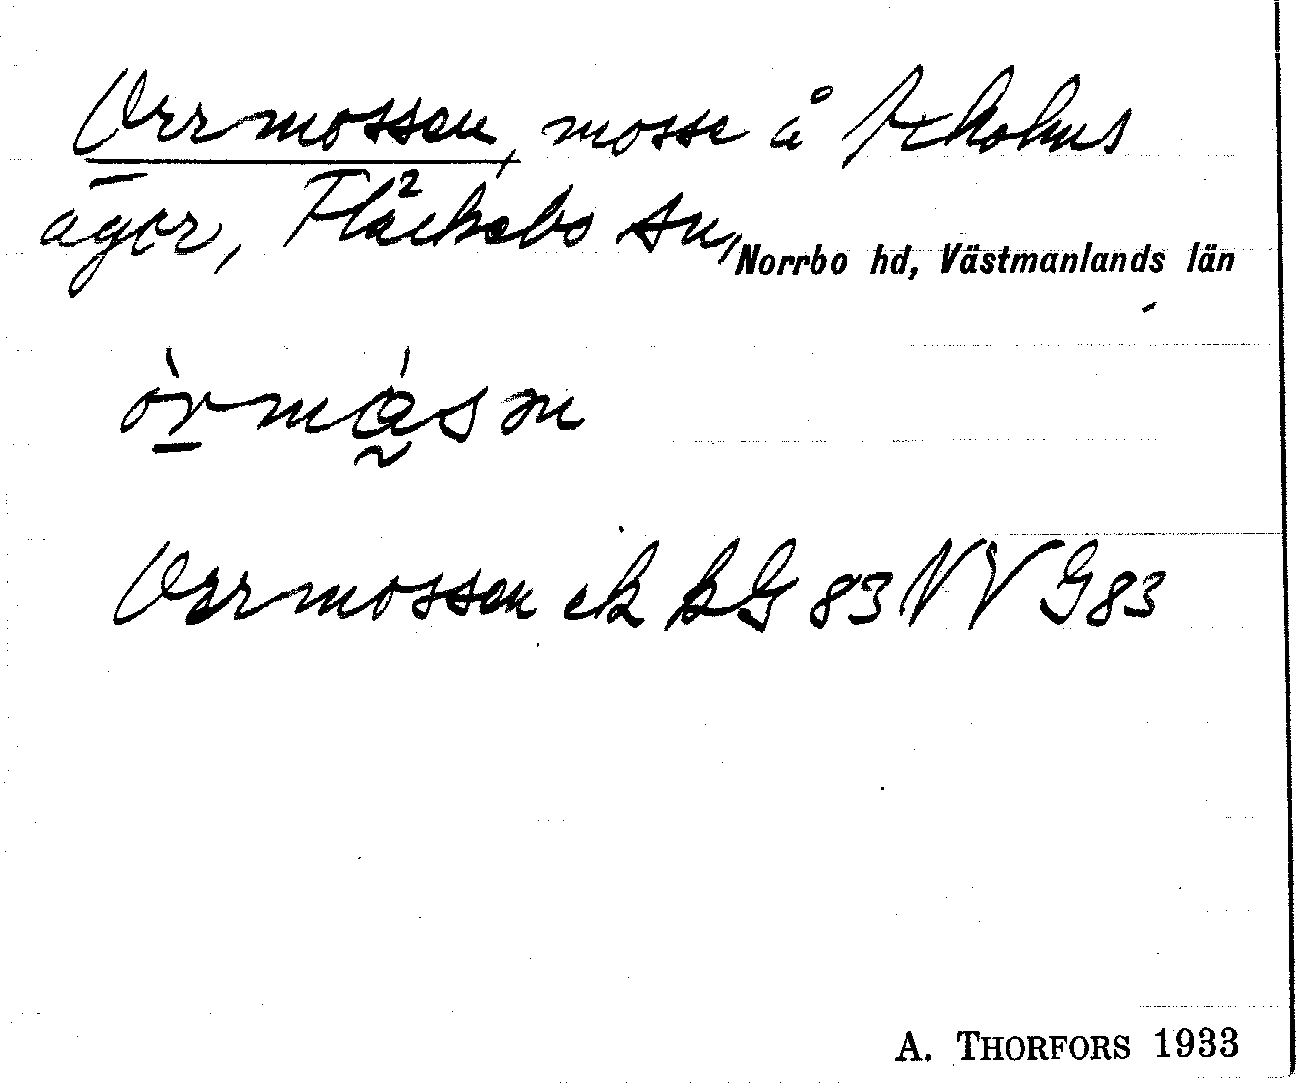 Orrmossen, mosse å
ägor, Fläckebo sn, Norrbo hd, Västmanlands län
Orrmossen ek kG 83 NV G83
A. THORFORS 1933